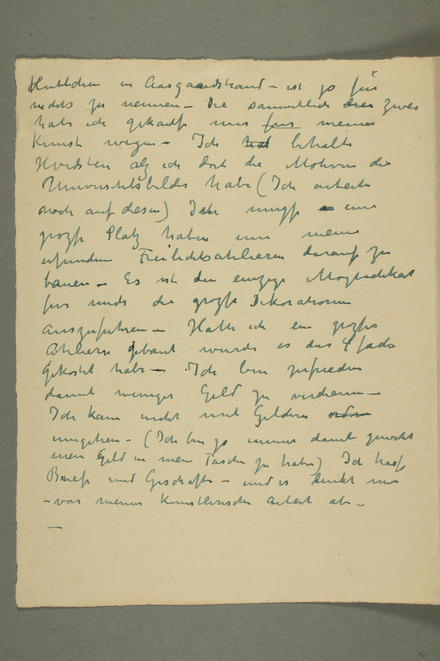 Hüttchen in Aasgaardstrand – ist ja für
nichts zu nennen – Die sammtliche drei zwei
habe ich gekauft nur für meine
Kunst wegen – Ich hab behalte
Hvidsten als ich dort die Motiven die
Universitetsbilder habe (Ich arbeite
noch auf diesen) Ich mußte eine
große Platz haben um meine
Freilichtsateliers darauf zu
bauen – Es ist die einzige Möglichkeit
für mich die große Dekorationen
auszuführen – Hätte ich ein großes
Atelier gebaut wurde es das 4fache
gekostet habe – Ich bin zufrieden
damit weniger Geld zu verdienen –
Ich kann nicht mit Geldern
umgehen – (Ich bin ja immer damit gewohnt
mein Geld in mein Tasche zu haben) Ich hasse
Briefe und Geschäfte – und es lenkt mir
– von meiner Künstlerische Arbeit ab –
—